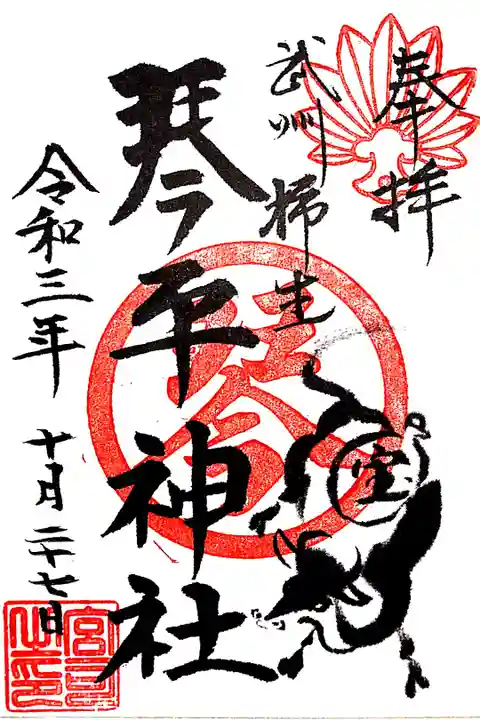 奉拝
武州柿生
琴平神社
令和三年
十月二十七日
琴
宝
宮司之印